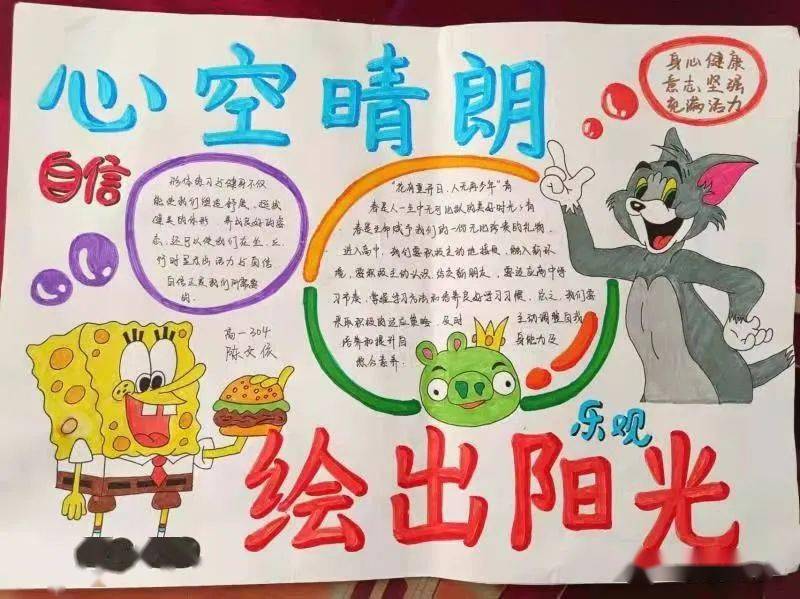 心空晴朗
身心健康
意志坚强
充满活力
自信
形体练习与健身不仅
能使我们团造舒展、挺拔
健美的体形 养成良好的姿
态，还可以使我们在坐、立、
行时呈现出活力与自信
自信正是我们所需要
的.
"花有重开日，人无再少年"青
春是人一生中无可比拟的美好时光，青
春是生命赋予我们的一份无比珍贵的礼物.
进入高中，我们要积极主动地接受、融入新环
境，要积极主动认识、结交新朋友，要适应高中学
习节奏，掌握学习方法和培养良好学习习惯，总之，我们要
采取积极的适应策略，及时 主动调整自我
培养和提升自 身能力及
综合素养.
高一304
陈文依
乐观
绘出阳光